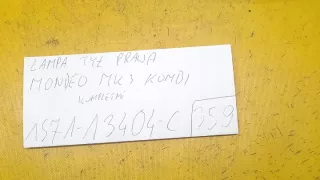 LAMPA TYŁ PRAWA
MONDEO MK3 KOMBI
KOMPLETNA
1S71-13404-C 159